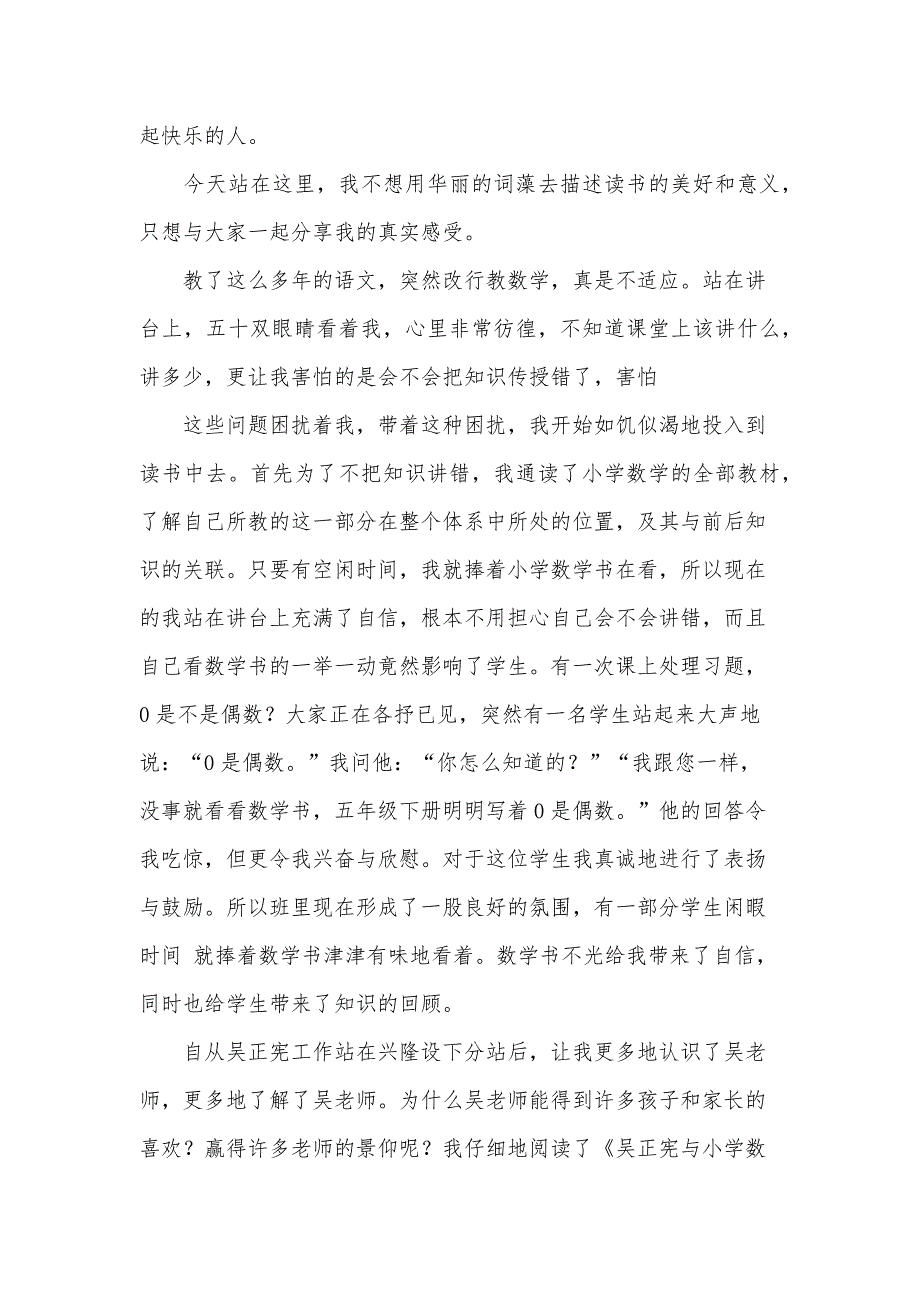 起快乐的人。
今天站在这里，我不想用华丽的词藻去描述读书的美好和意义，
只想与大家一起分享我的真实感受。
教了这么多年的语文，突然改行教数学，真是不适应。站在讲
台上，五十双眼睛看着我，心里非常彷徨，不知道课堂上该讲什么，
讲多少，更让我害怕的是会不会把知识传授错了，害怕
这些问题困扰着我，带着这种困扰，我开始如饥似渴地投入到
读书中去。首先为了不把知识讲错，我通读了小学数学的全部教材，
了解自己所教的这一部分在整个体系中所处的位置，及其与前后知
识的关联。只要有空闲时间，我就捧着小学数学书在看，所以现在
的我站在讲台上充满了自信，根本不用担心自己会不会讲错，而且
自己看数学书的一举一动竟然影响了学生。有一次课上处理习题，
0是不是偶数？大家正在各抒已见，突然有一名学生站起来大声地
说：“0 是偶数。”我问他：“你怎么知道的？”“我跟您一样，
没事就看看数学书，五年级下册明明写着 0 是偶数。”他的回答令
我吃惊，但更令我兴奋与欣慰。对于这位学生我真诚地进行了表扬
与鼓励。所以班里现在形成了一股良好的氛围，有一部分学生闲暇
时间 就捧着数学书津津有味地看着。数学书不光给我带来了自信，
同时也给学生带来了知识的回顾。
自从吴正宪工作站在兴隆设下分站后，让我更多地认识了吴老
师，更多地了解了吴老师。为什么吴老师能得到许多孩子和家长的
喜欢？赢得许多老师的景仰呢？我仔细地阅读了《吴正宪与小学数